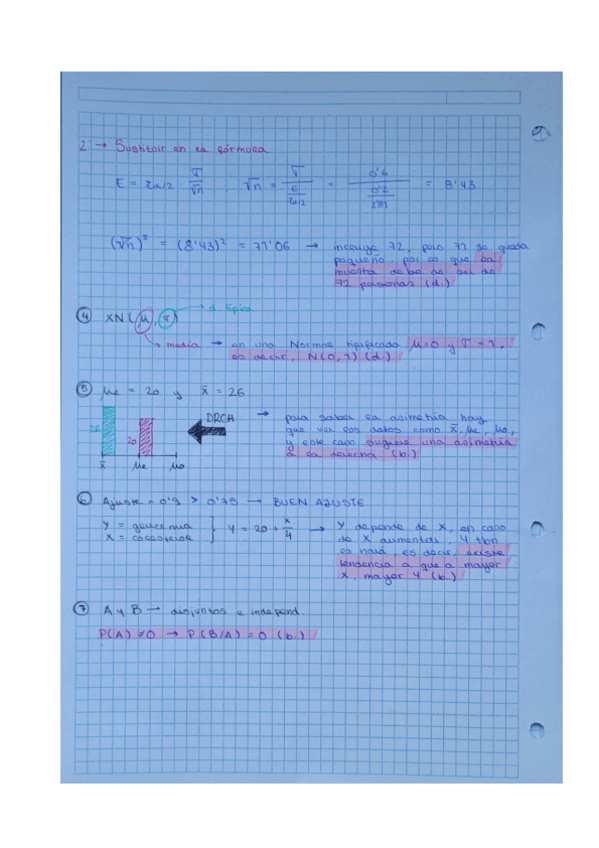 2 → Sustituir en la fórmula
E = Zα/2 · σ/√n , √n = σ/(E/Zα/2) = 0'6/(0'2/2'81) = 8'43
(√n)² = (8'43)² = 71'06 → incluye 72, pero 71 se queda
pequeño, por lo que la
muestra debe de ser de
72 personas (d.)
④ XN(μ, σ) → d. típica
→ media → en una Normal tipificada μ=0 y σ=1,
es decir, N(0,1) (d.)
⑤ Me = 20 y x̄ = 26
DRCH → para saber la asimetría hay
que ver los datos como x̄, Me, Mo,
y este caso sugiere una asimetría
a la derecha (b.)
26 20
x̄ Me Mo
⑥ Ajuste = 0'9 > 0'75 → BUEN AJUSTE
Y = glucemia
X = colesterol } Y = 20 + x/4 → Y depende de X, en caso
de X aumentar, Y tbn
lo hará, es decir, existe
tendencia a que a mayor
X, mayor Y (b.)
⑦ A y B → disjuntos e independ.
P(A) ≠ 0 → P(B/A) = 0 (b.)